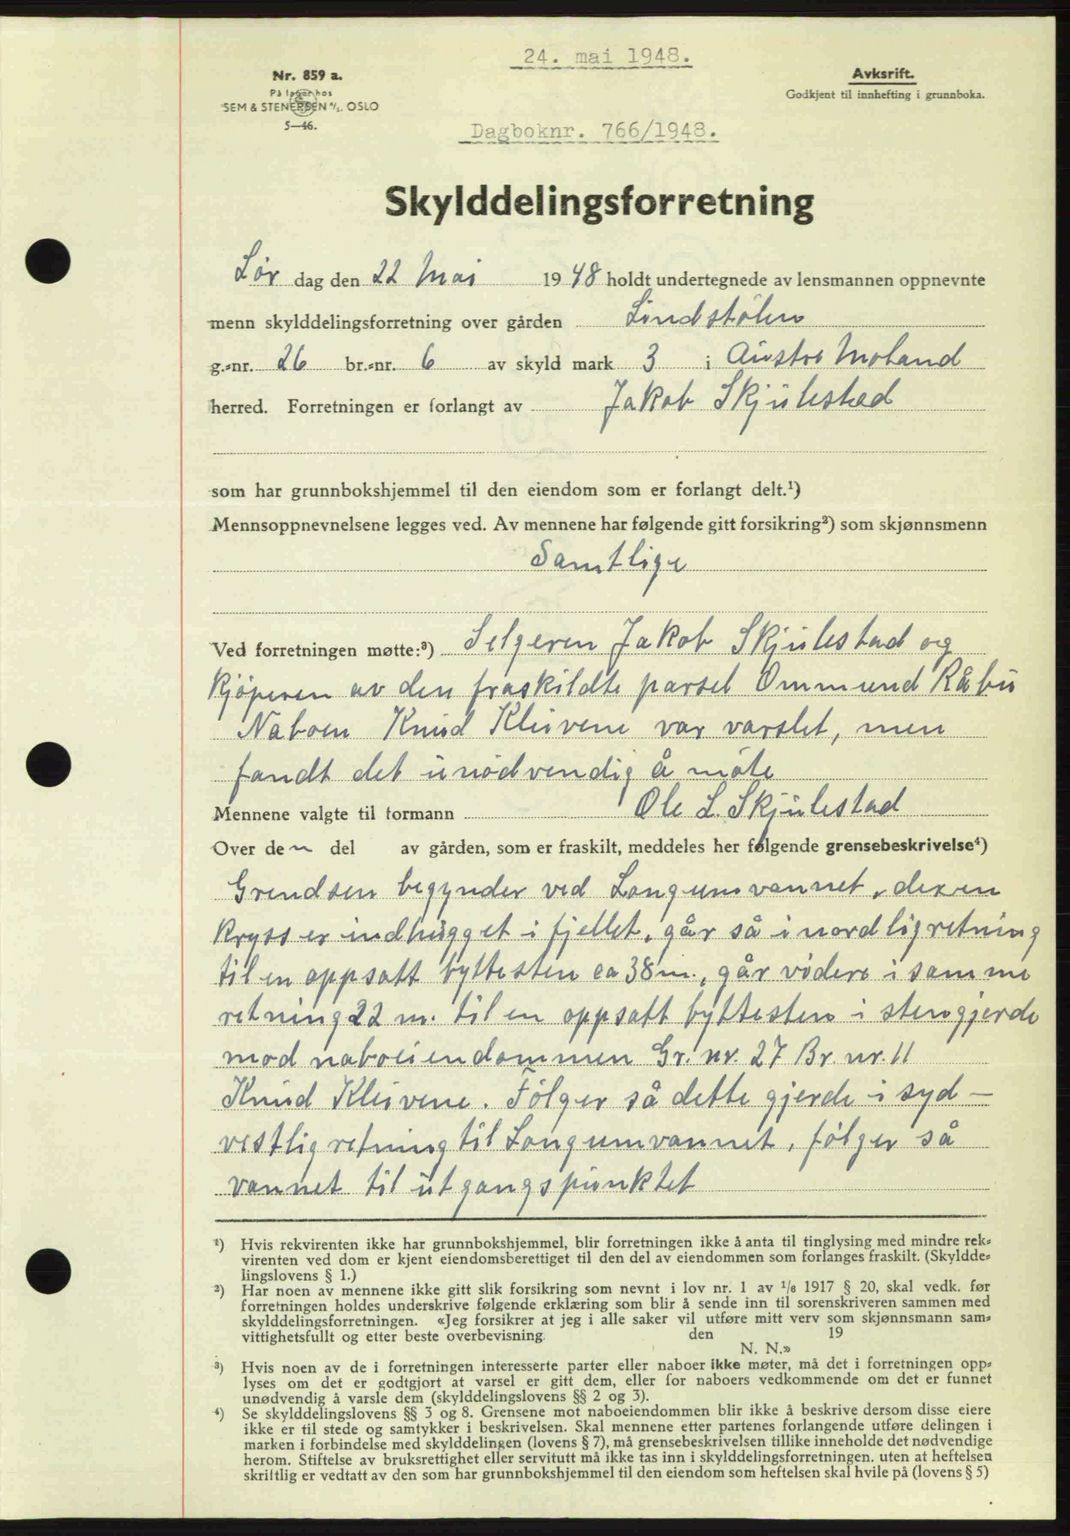 24. mai 1948.
Nr. 859 a.
På lager hos
SEM & STENERSEN A/S. OSLO
5—46.
Avksrift.
Godkjent til innhefting i grunnboka.
Dagboknr. 766/1948.
Skylddelingsforretning
Lør dag den 22 Mai 1948 holdt undertegnede av lensmannen oppnevnte
menn skylddelingsforretning over gården Lindstølen
g.-nr. 26 br.-nr. 6 av skyld mark 3 i Austre Moland
herred. Forretningen er forlangt av Jakob Skjulestad
som har grunnbokshjemmel til den eiendom som er forlangt delt.¹)
Mennsoppnevnelsene legges ved. Av mennene har følgende gitt forsikring²) som skjønnsmenn
Samtlige
Ved forretningen møtte:³) Selgeren Jakob Skjulestad og
kjøperen av den fraskildte parsel Ommund Råbu
Naboen Knud Kleivene var varslet, men
fandt det unødvendig å møte
Mennene valgte til formann Ole L. Skjulestad
Over den del av gården, som er fraskilt, meddeles her følgende grensebeskrivelse⁴)
Grendsen begynder ved Longumvannet, der en
kryss er indhugget i fjellet, går så i nordlig retning
til en oppsatt byttesten ca 38 m., går videre i samme
retning 22 m. til en oppsatt byttesten i stengjerde
mod naboeiendommen Gr. nr. 27 Br. nr. 11
Knud Kleivene. Følger så dette gjerde i syd-
vestlig retning til Longumvannet, følger så
vannet til utgangspunktet
¹) Hvis rekvirenten ikke har grunnbokshjemmel, blir forretningen ikke å anta til tinglysing med mindre rek-
virenten ved dom er kjent eiendomsberettiget til den del av eiendommen som forlanges fraskilt. (Skyldde-
lingslovens § 1.)
²) Har noen av mennene ikke gitt slik forsikring som nevnt i lov nr. 1 av ¹/₆ 1917 § 20, skal vedk. før
forretningen holdes underskrive følgende erklæring som blir å sende inn til sorenskriveren sammen med
skylddelingsforretningen. «Jeg forsikrer at jeg i alle saker vil utføre mitt verv som skjønnsmann sam-
vittighetsfullt og etter beste overbevisning. den 19
N. N.»
³) Hvis noen av de i forretningen interesserte parter eller naboer ikke møter, må det i forretningen opp-
lyses om det er godtgjort at varsel er gitt dem, eller for naboers vedkommende om det er funnet
unødvendig å varsle dem (skylddelingslovens §§ 2 og 3).
⁴) Se skylddelingslovens §§ 3 og 8. Grensene mot naboeiendommen blir ikke å beskrive dersom disse eiere
ikke er til stede og samtykker i beskrivelsen. Skal mennene etter partenes forlangende utføre delingen i
marken i forbindelse med skylddelingen (lovens § 7), må grensebeskrivelsen tillike inneholde det nødvendige
herom. Stiftelse av bruksrettighet eller servitutt må ikke tas inn i skylddelingsforretningen. uten at heftelsen
skriftlig er vedtatt av den som har grunnbokshjemmel til den eiendom som heftelsen skal hvile på (lovens § 5)